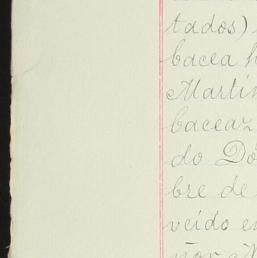 tados)
bacea h
Martin
baceaz
do Dó
bre de
veido e